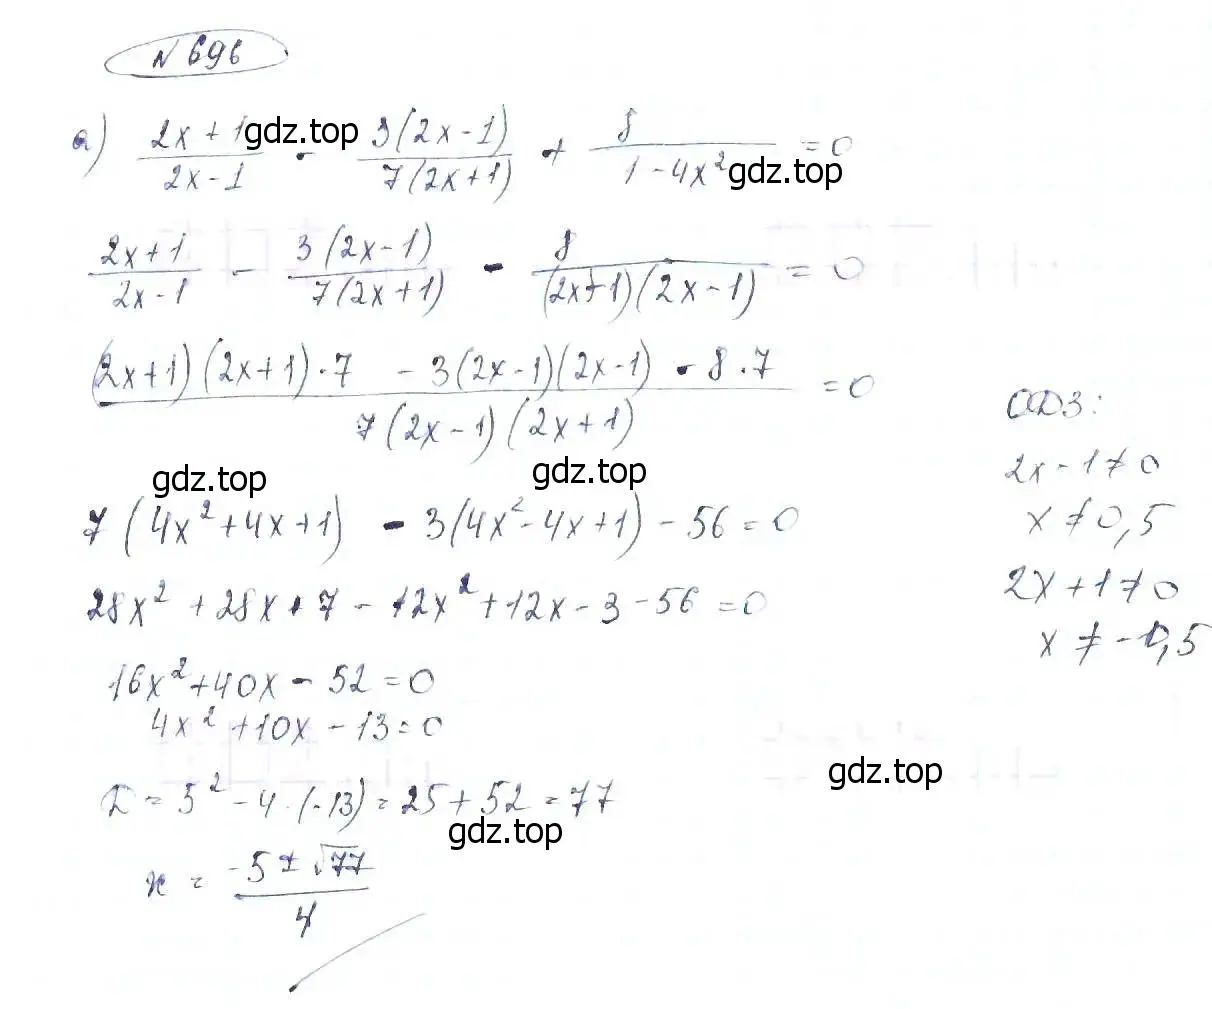 N 696
а) (2x+1)/(2x-1) - 3(2x-1)/(7(2x+1)) + 8/(1-4x²) = 0
gdz.top
gdz.top
(2x+1)/(2x-1) - 3(2x-1)/(7(2x+1)) - 8/((2x+1)(2x-1)) = 0
((2x+1)(2x+1)·7 - 3(2x-1)(2x-1) - 8·7)/(7(2x-1)(2x+1)) = 0
ОДЗ:
2x-1≠0
x≠0,5
2x+1≠0
x≠-0,5
gdz.top
gdz.top
7(4x²+4x+1) - 3(4x²-4x+1) - 56 = 0
28x² + 28x + 7 - 12x² + 12x - 3 - 56 = 0
16x²+40x - 52 = 0
4x² + 10x - 13 = 0
gdz.top
D = 5² - 4·(-13) = 25 + 52 = 77
gdz.top
x = (-5 ± √77)/4